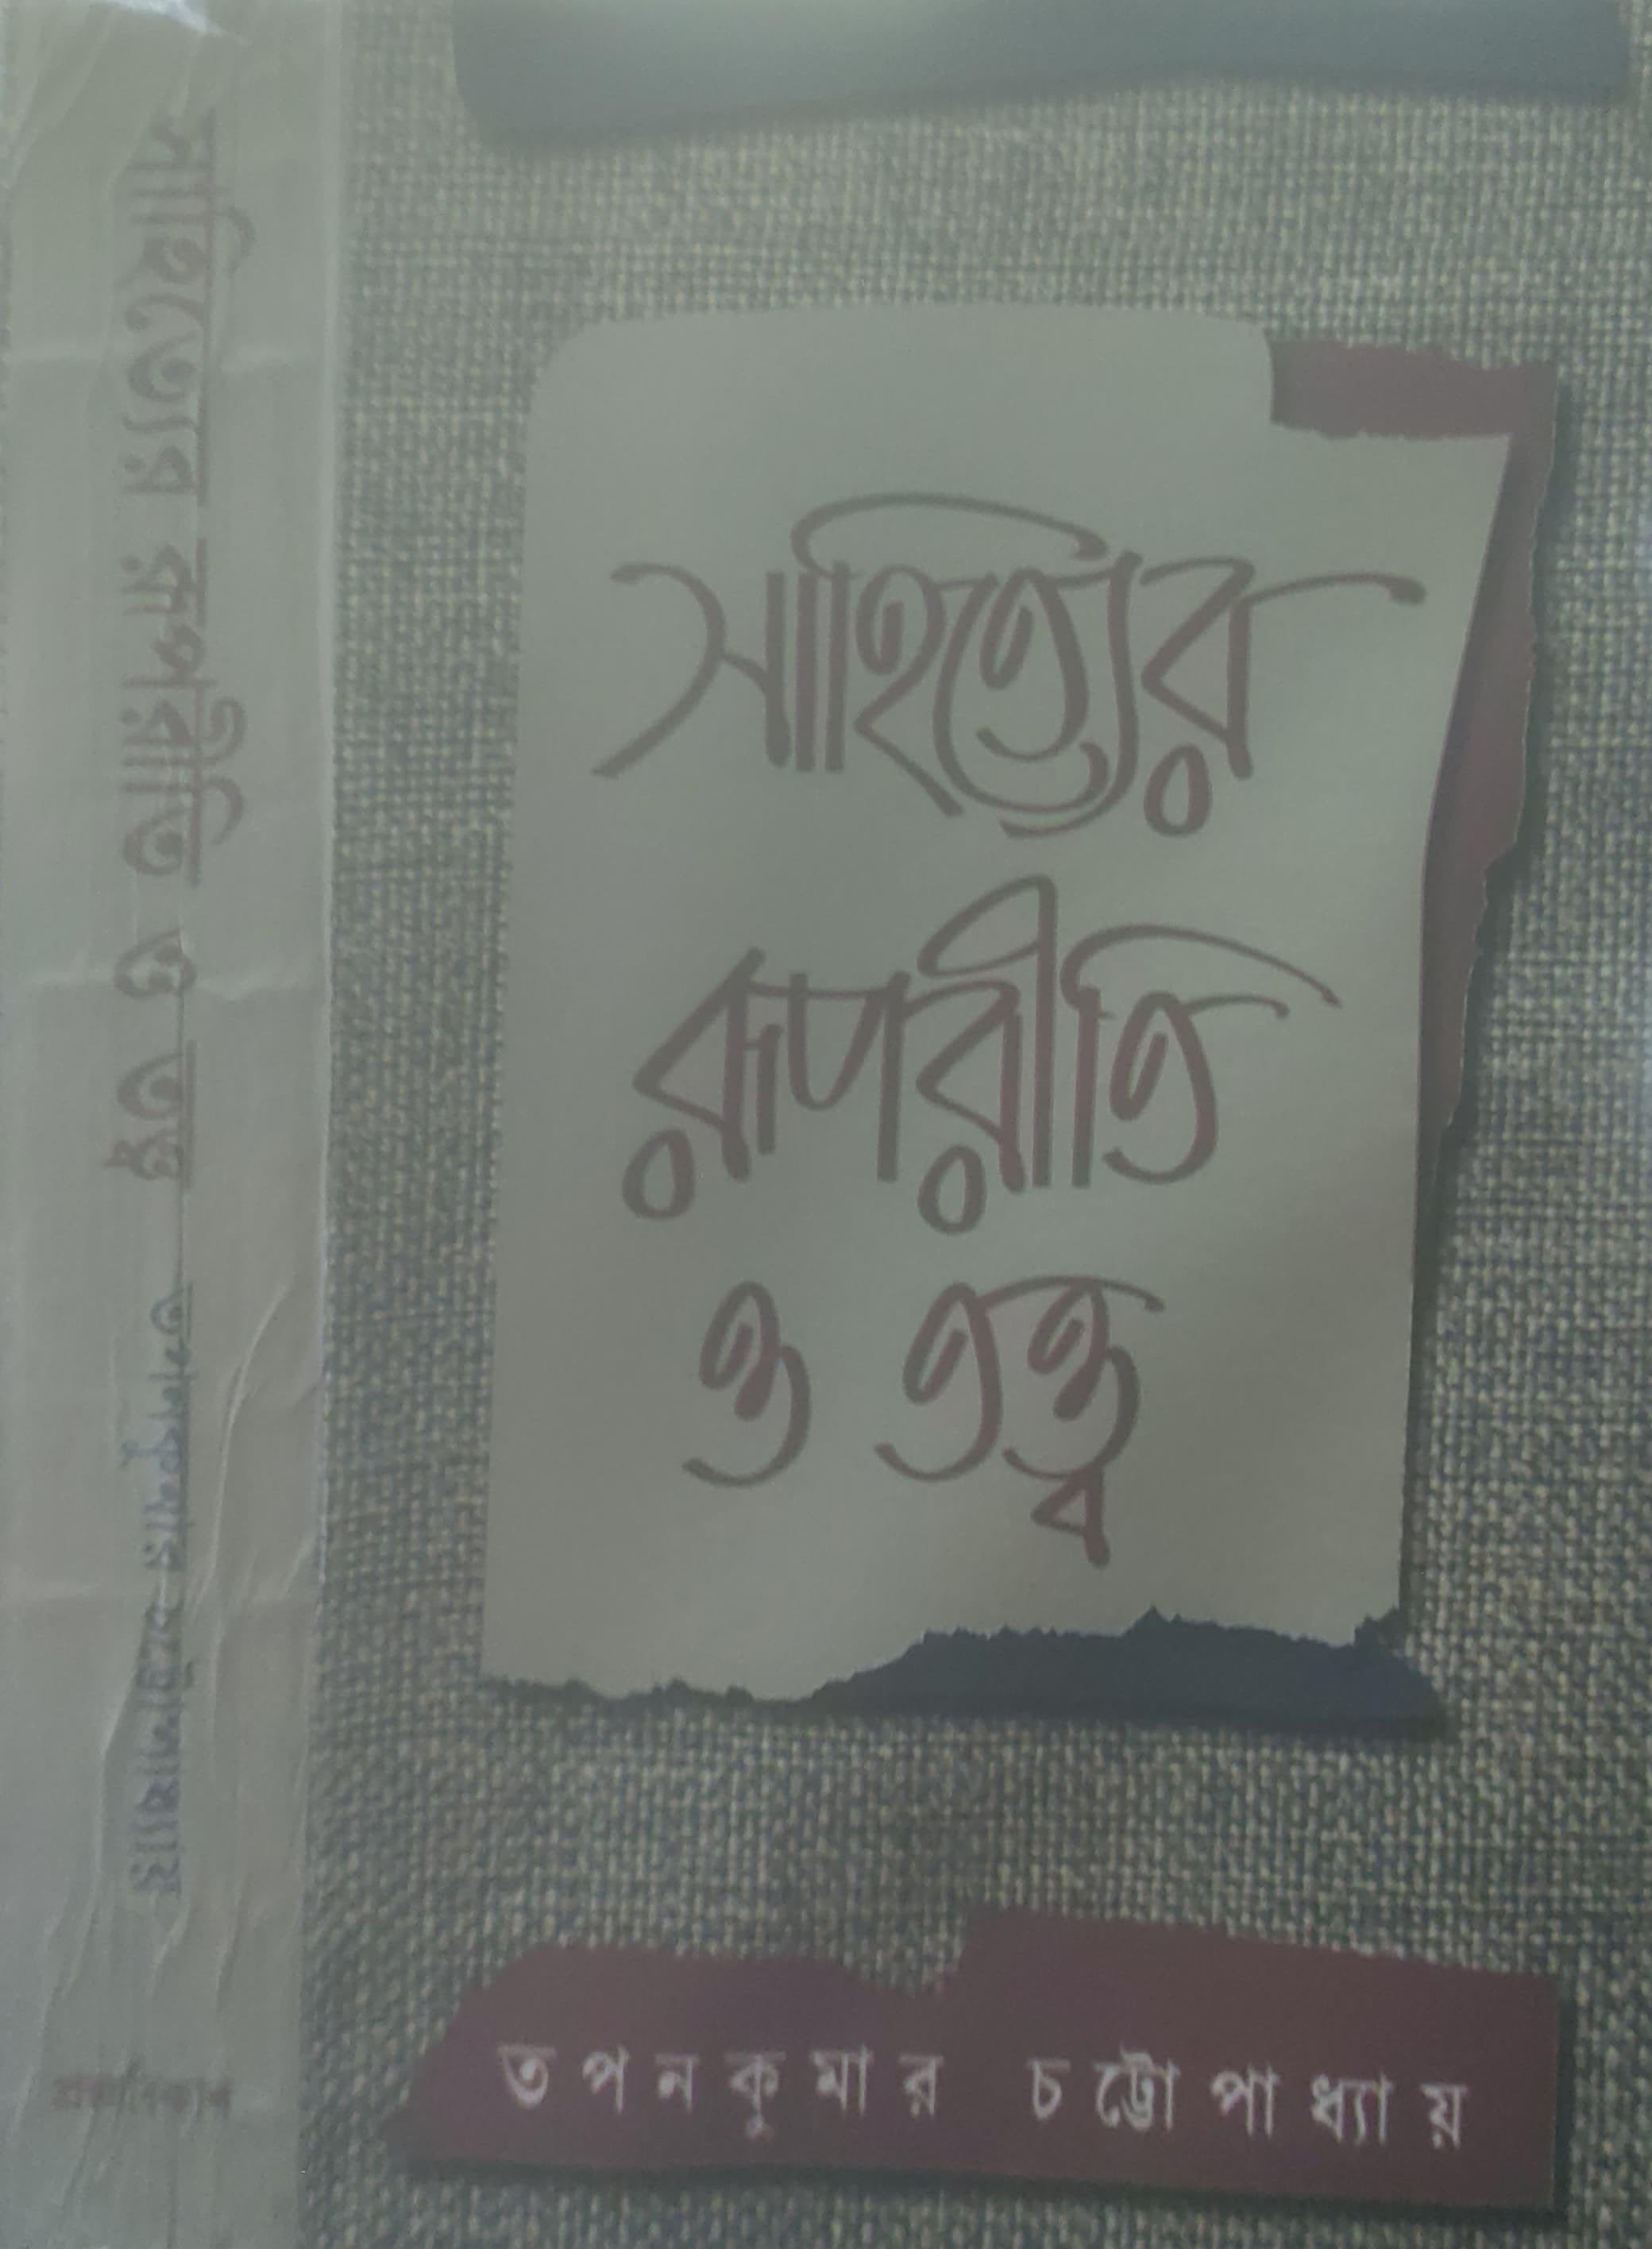 সাহিত্যের
রূপরীতি
ও তত্ত্ব
তপনকুমার চট্টোপাধ্যায়
সাহিত্যের রূপরীতি ও তত্ত্ব তপনকুমার চট্টোপাধ্যায়
প্রজ্ঞাবিকাশ